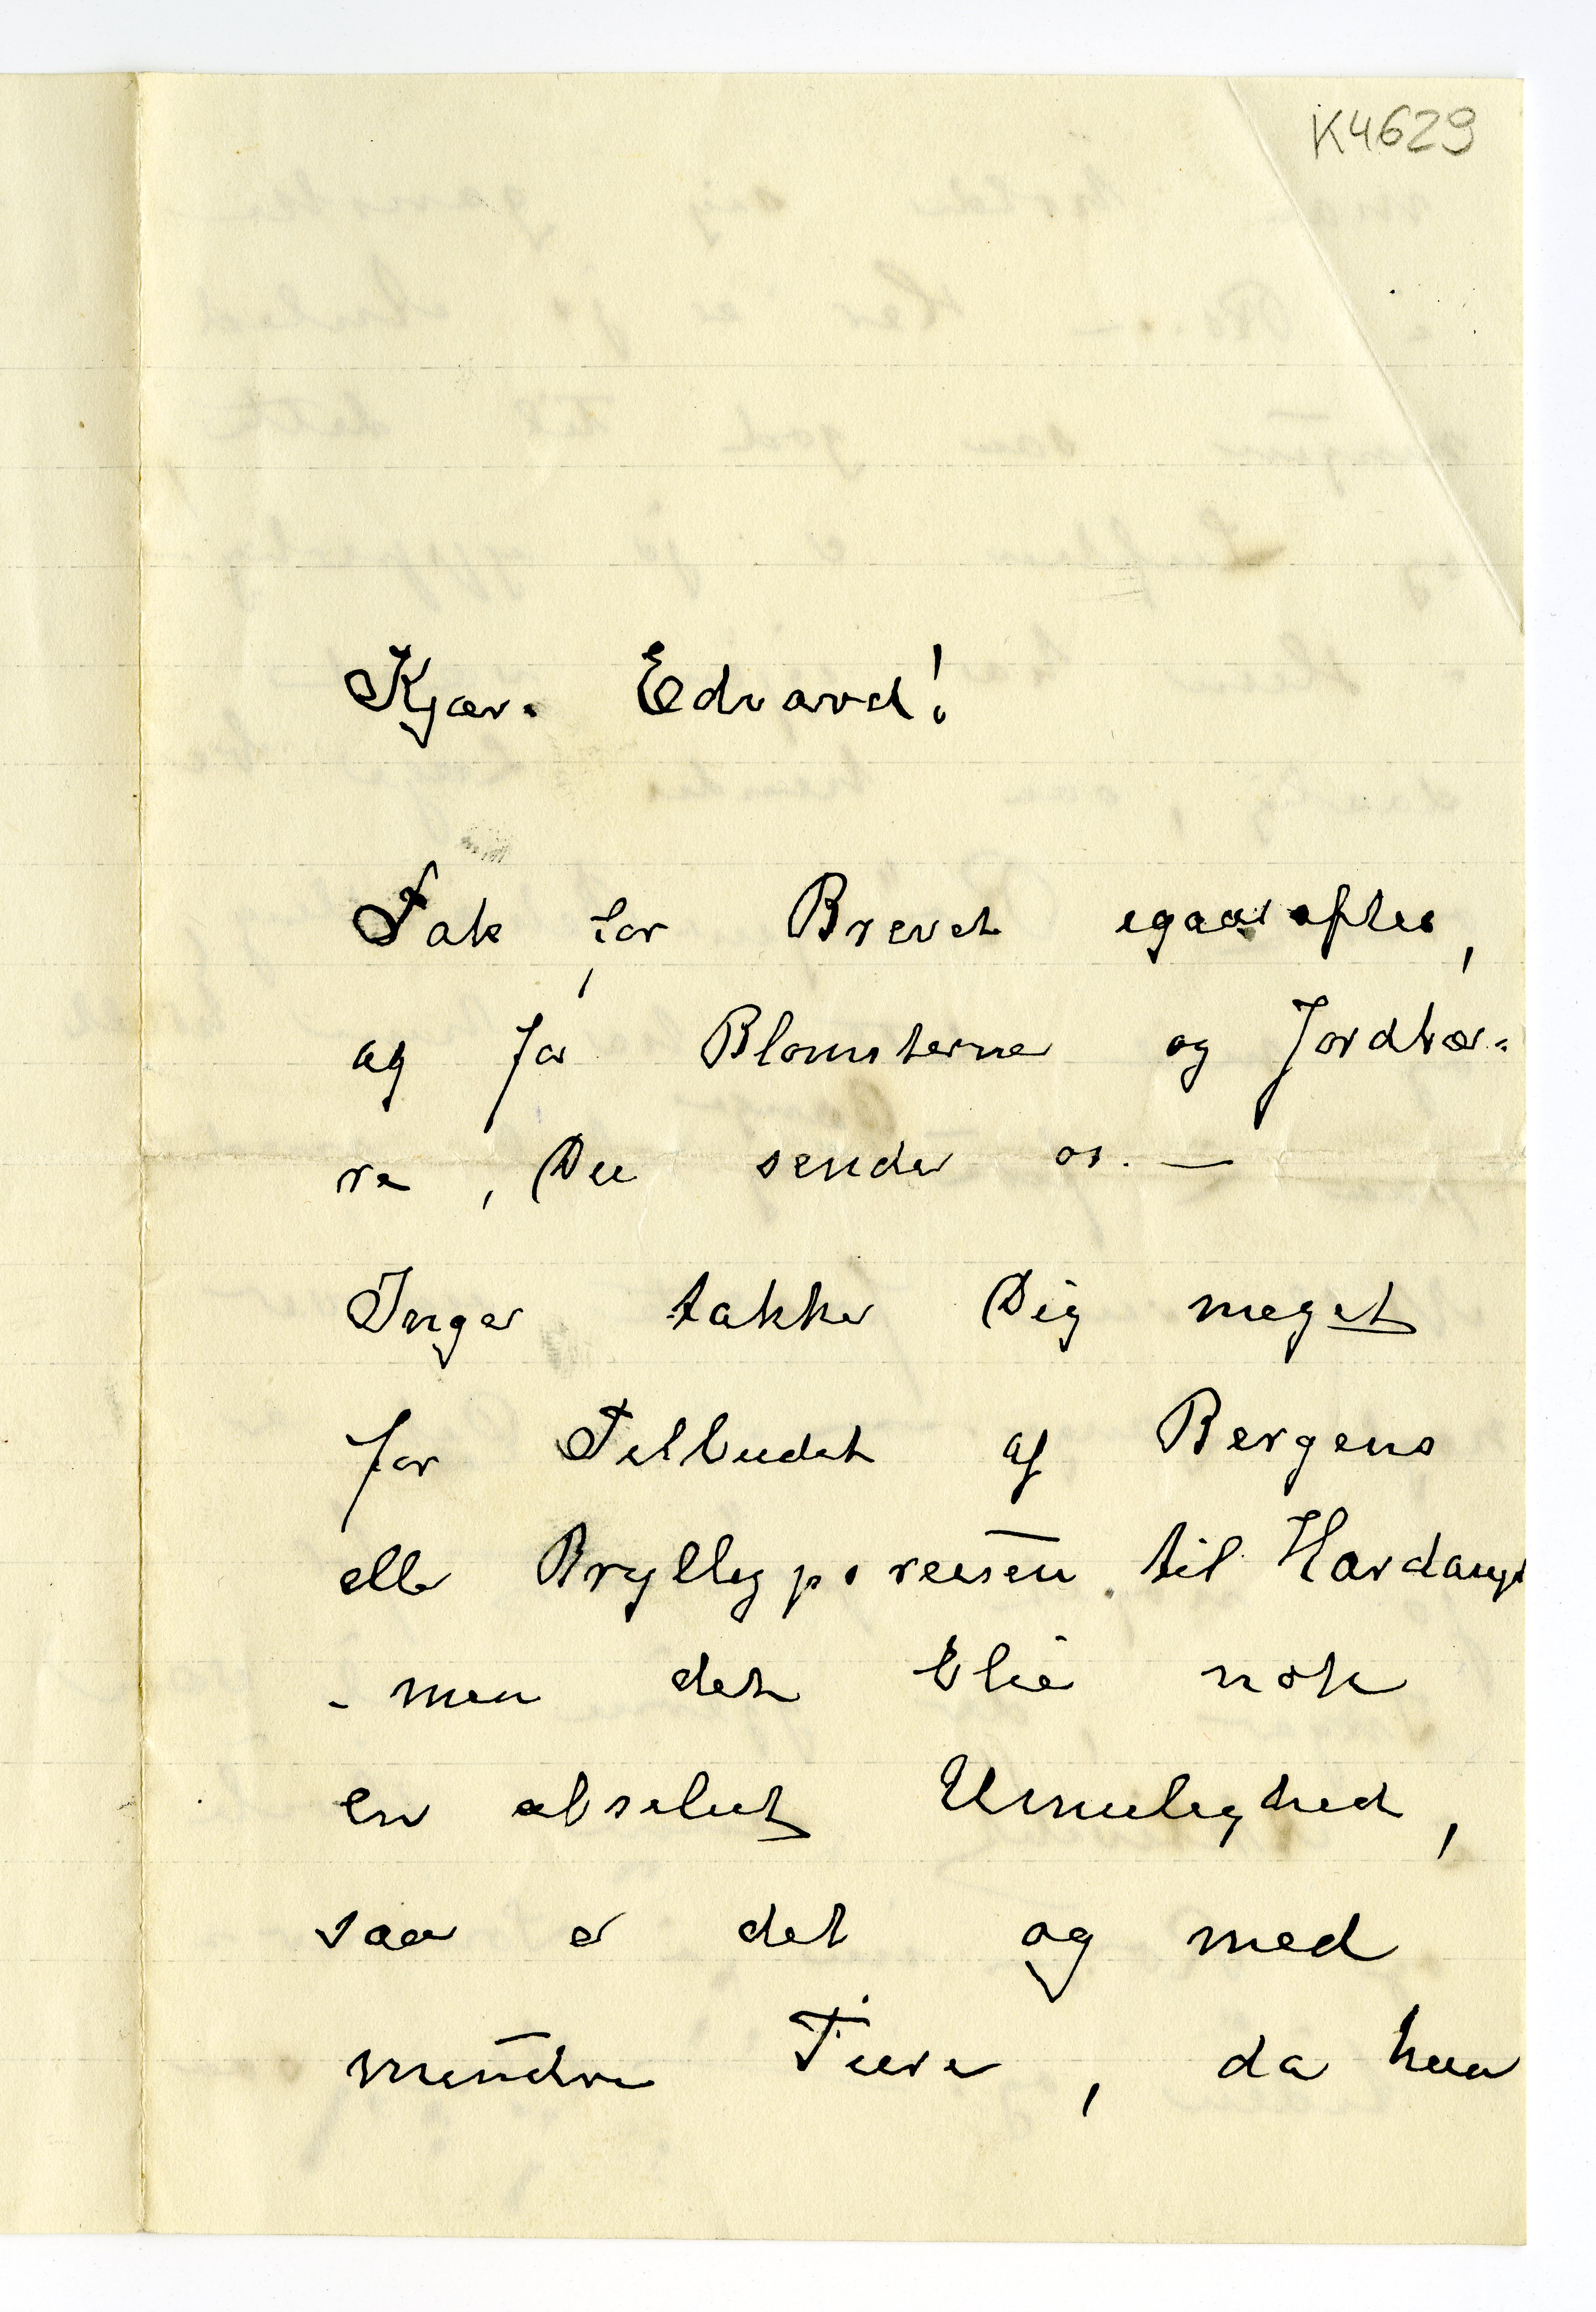 K4629
Kjære Edvard!
Tak for Brevet igaaraftes,
og for Blomsterne og Jordbær-
re, Du sender os. —
Inger takker Dig meget
for Tilbudet af Bergens
eller Bryllupsreisen til Hardanger
- men det blir nok
en absolut Umulighed,
saa er det og med
mindre Ture, da hun